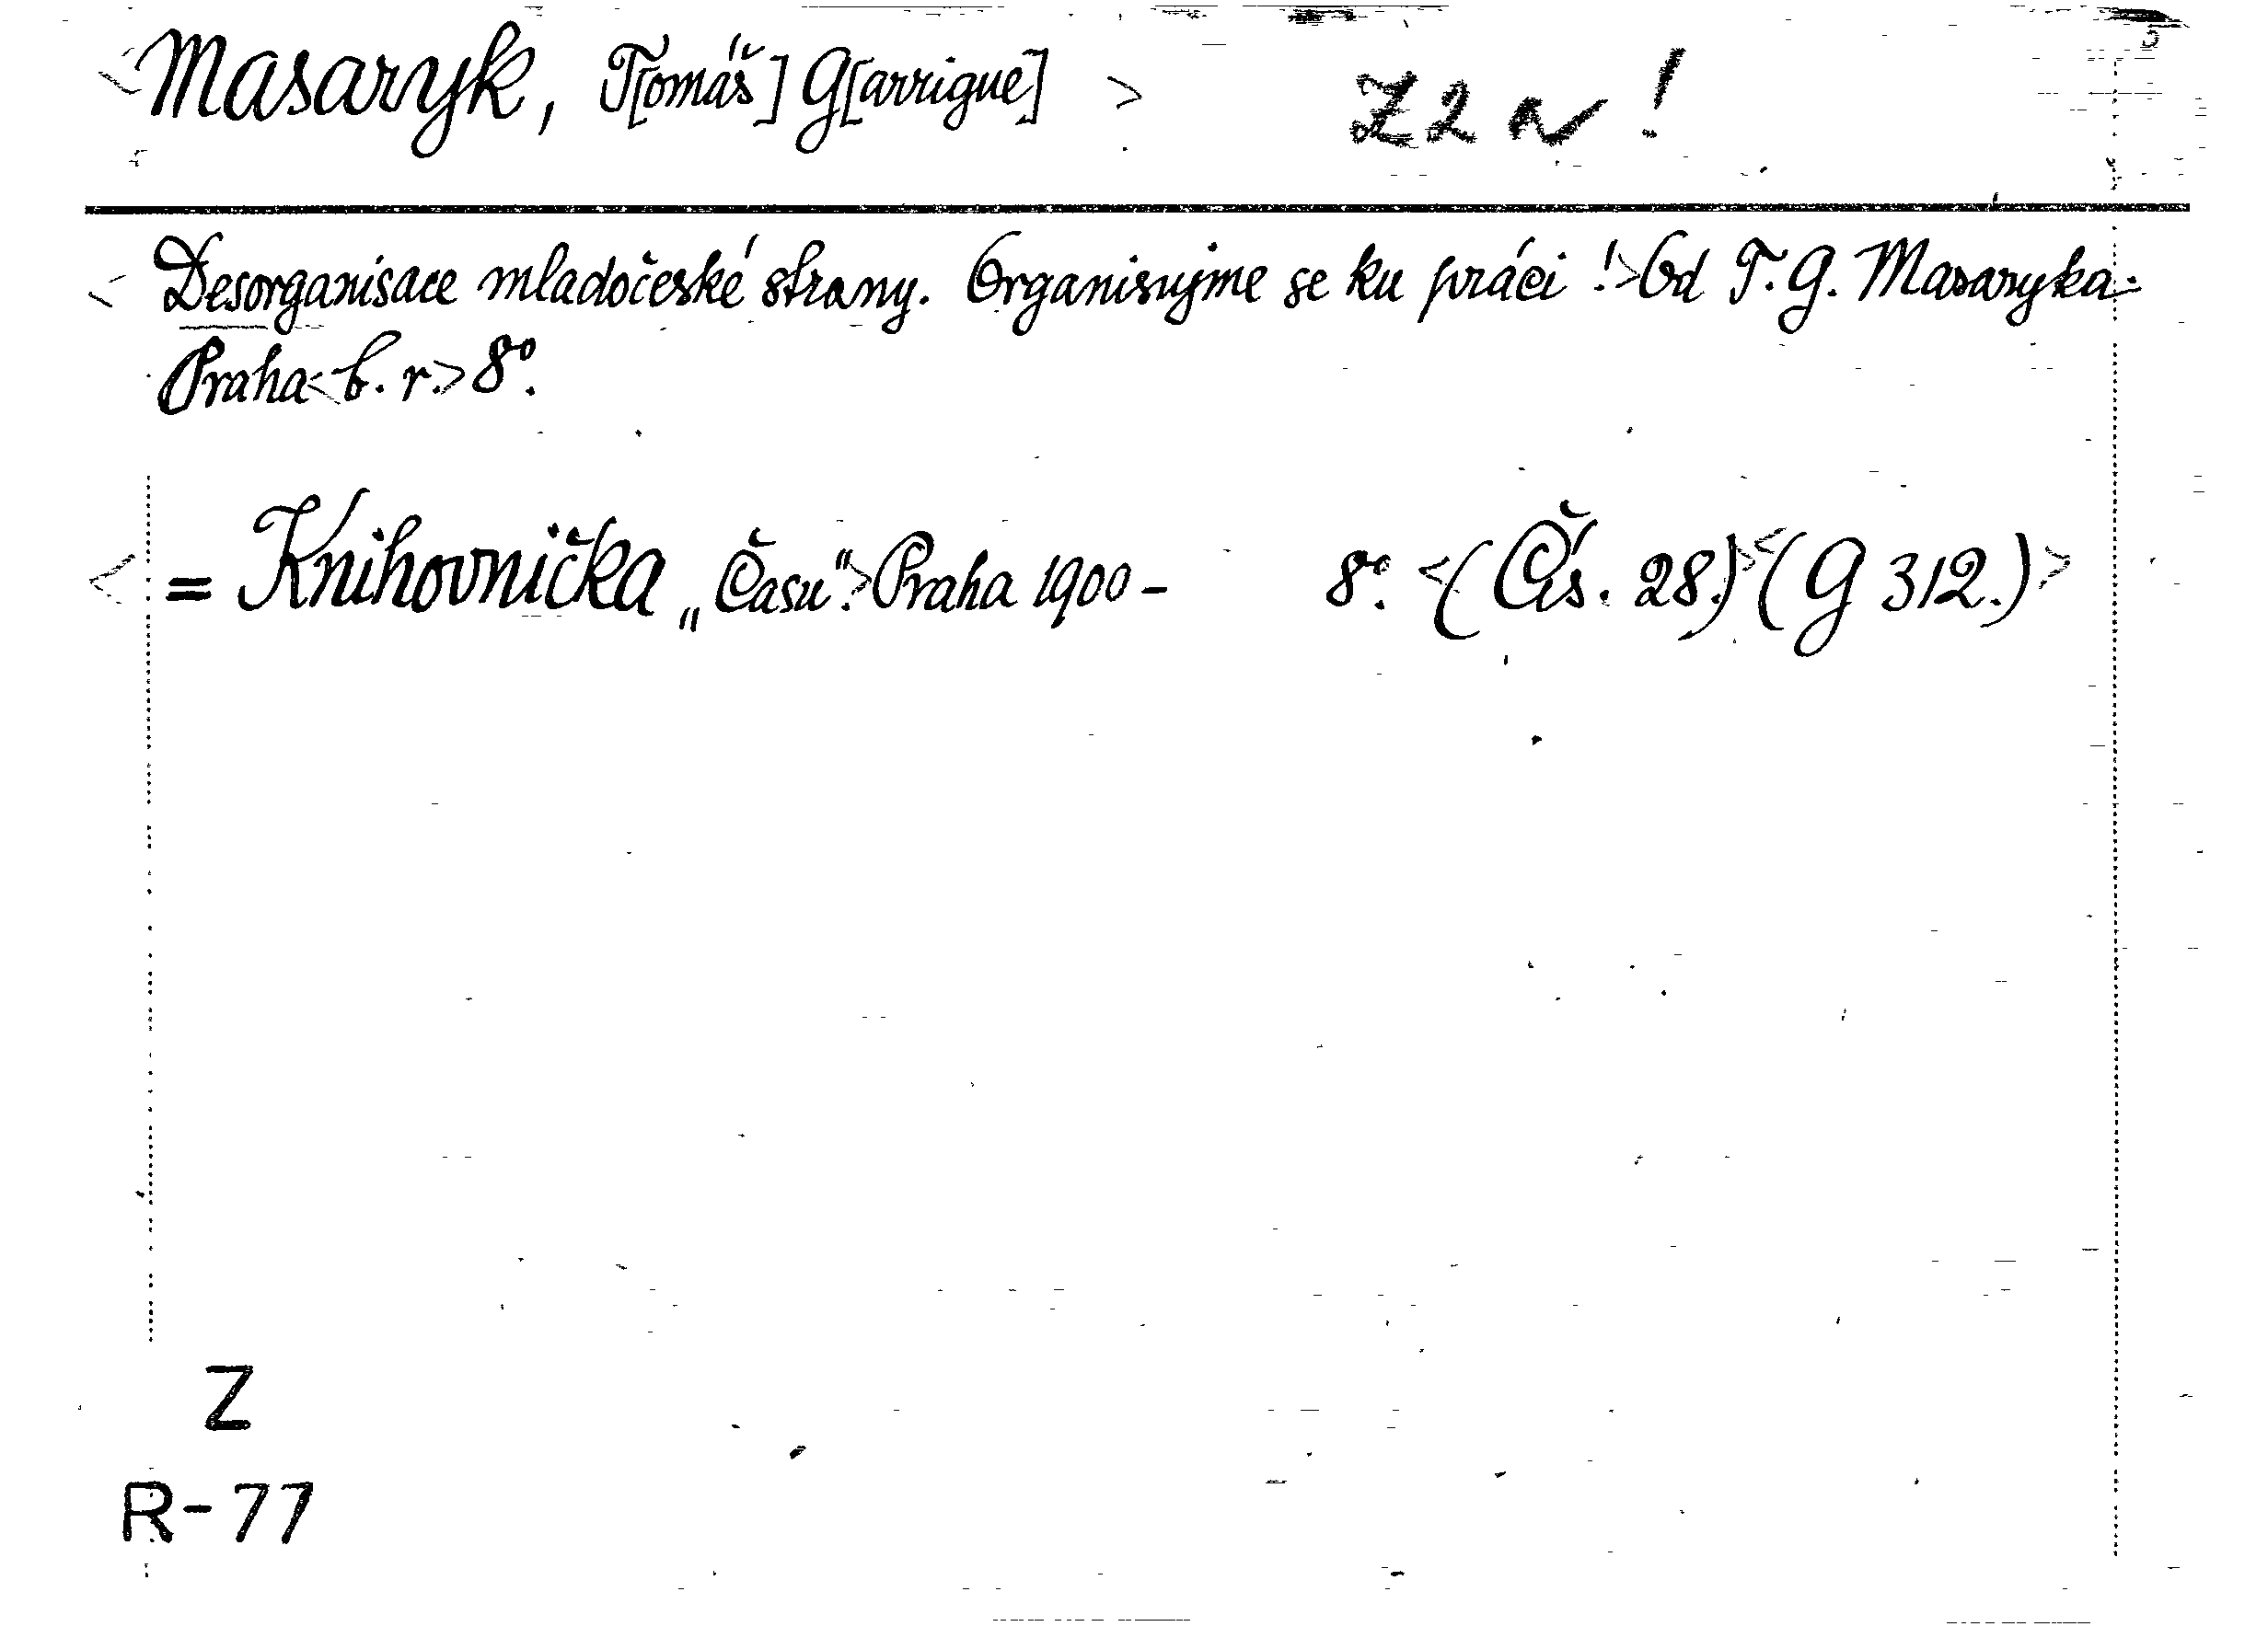 <Masaryk, T[omáš] G[arrigue]> Z 2 a !
<Desorganisace mladočeské strany. Organisujme se ku práci!> Od T. G. Masaryka.
Praha <b. r.> 8°.
<= Knihovnička „Času“.> Praha 1900- 8°. <(Čís. 28.)> <(G 312.)>
Z
R-77